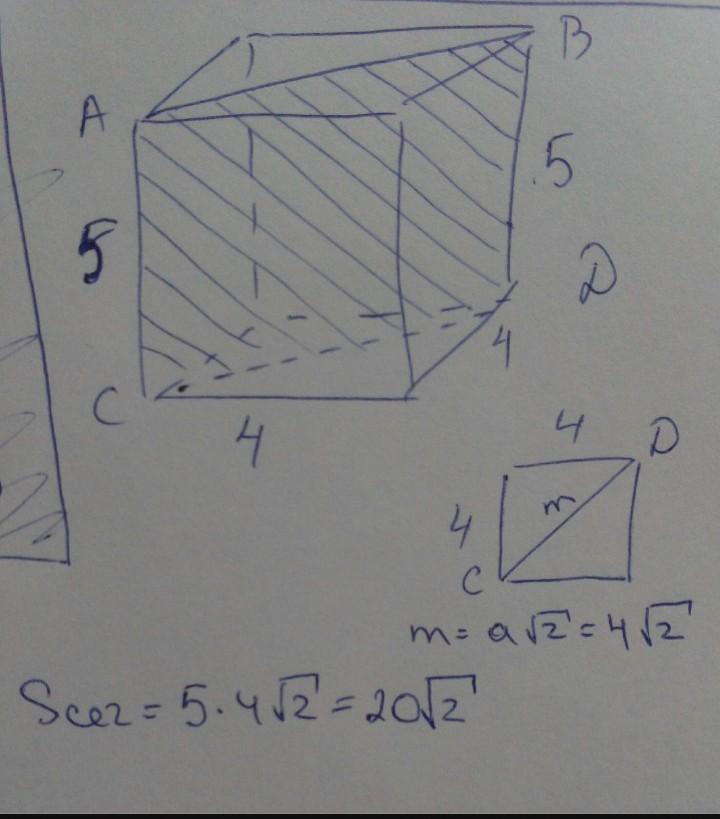 B
A
5
5
D
4
C
4
4
D
4
m
C
m = a√2 = 4√2
Sсег = 5 · 4√2 = 20√2